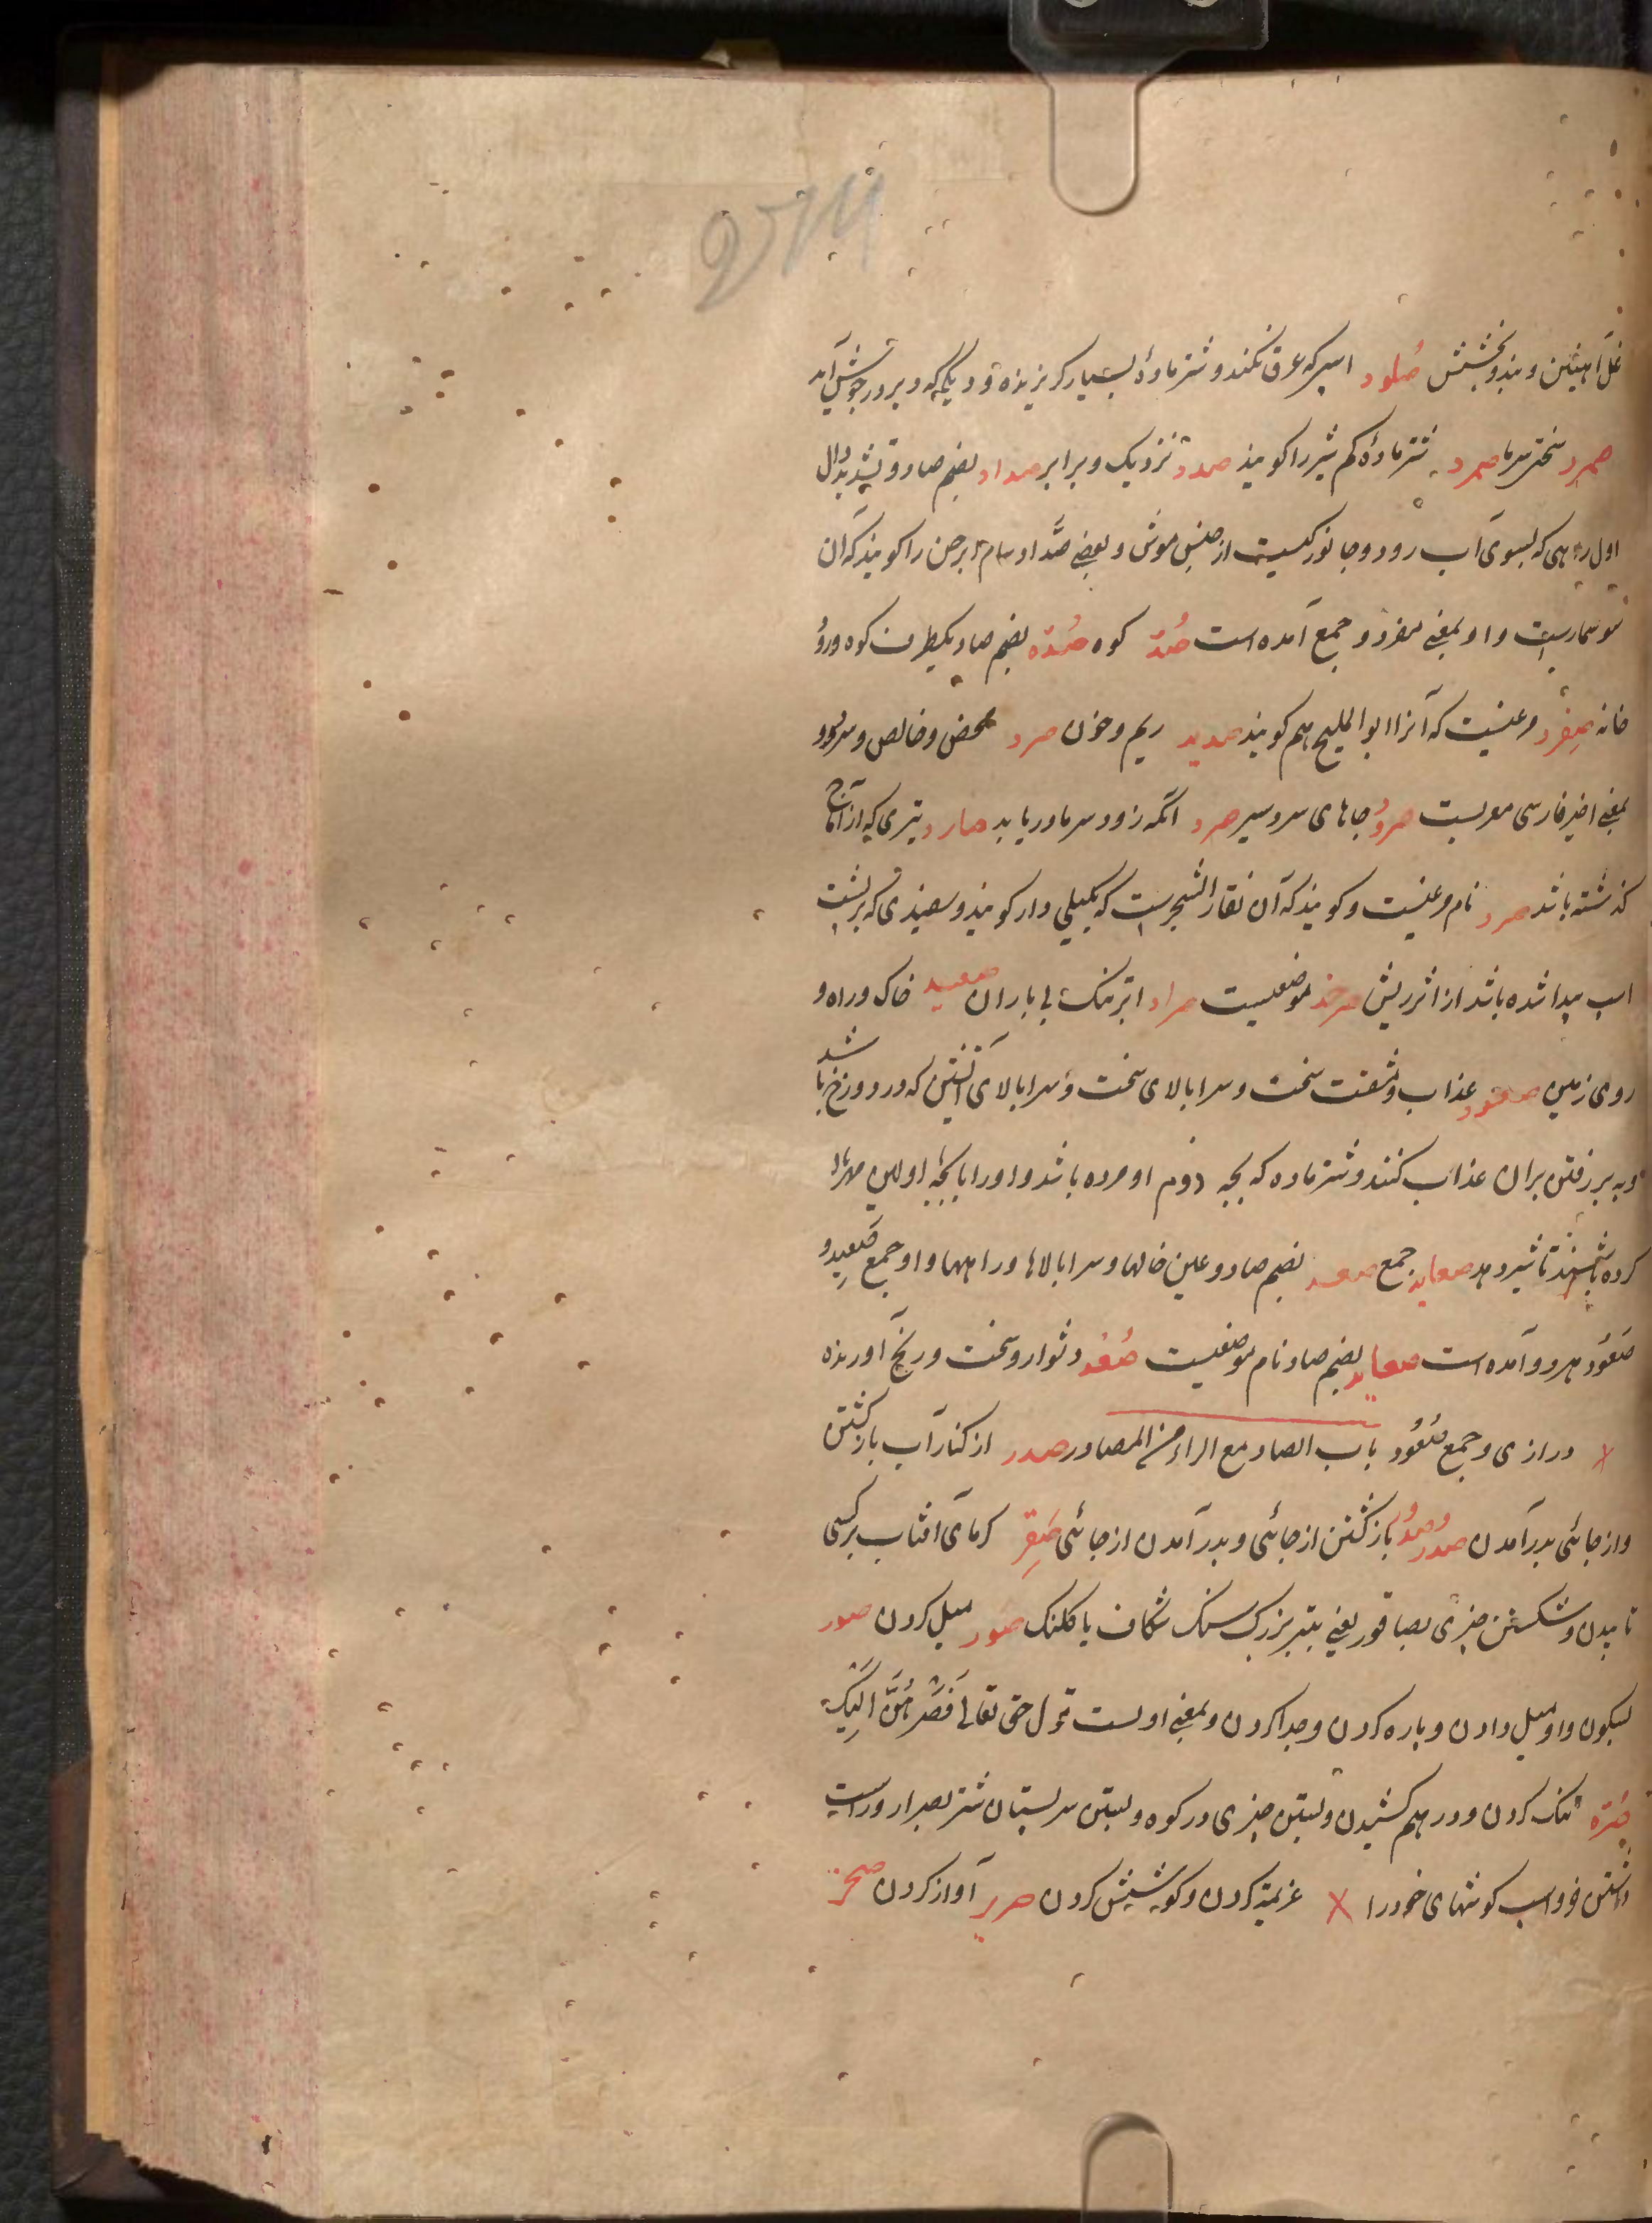 غل آهنین و بند و بخشش صلود اسپ که عرق نکند و شتر مادهٔ بسیار گریزنده و دیگی که دیر در جوش آید
صرد سختی سرما صمرد شتر مادهٔ کم شیر را کویند صدد نزدیک و برابر صداد بضم صاد و تشدید دال
اول راهی که بسوی آب رود و جانورکیست از جنس موش و بعضی صداد سام ابرص را کویند که آن
سوسماریست و او بمعنی مفرد و جمع آمده است صُدّ کوه صُدّه بضم صاد یکطرف کوه و روُ
خانه صِفرِد مرغیست که آنرا ابو الملیح هم کویند صدید ریم و خون صرد محض و خالص و سرد و
بمعنی اخیر فارسی معربست صرود جاهای سردسیر صرد آنکه زود سرما دریابد صارد تیری که از آماج
کذشته باشد صرد نام مرغیست و کویند که آن نقار الشجرست که بکیلی دار کویند و سفیدی که بر پشت
اسپ پیدا شده باشد از اثر ریش صرخد موضعیست صراد ابر تنک بی باران صعید خاک و راه و
روی زمین صعود عذاب و مشقت سخت و سرابالای سخت و سرابالای آتشین که در دوزخ باشد
و به بر رفتن بران عذاب کنند و شتر ماده که بچه دوم او مرده باشد و او را با بچهٔ اولین مهربان
کرده باشند تا شیر دهد صعاید جمع صعد بضم صاد و عین خاکها و سرابالاها و راهها و او جمع صَعِید و
صَعُود هر دو آمده است صعاید بضم صاد نام موضعیست صُعُد دشوار و سخت و رنج آورنده
درازی و جمع صَعُود باب الصاد مع الراء من المصادر صدر از کنار آب بازکشتن
و از جائی بدر آمدن صدر صدور بازکشتن از جائی و بدر آمدن از جائی صَقر کرمای آفتاب بر کسی
تابیدن و شکستن چیزی بصاقور یعنی بتبر بزرک سنک شکاف یا کلنک صَوَر میل کردن صور
بسکون واو میل دادن و پاره کردن و جدا کردن و بمعنی اولست قول حق تعالی فَصُرْهُنَّ اِلَیْکَ
صَرّه تنک کردن و درهم کشیدن و بستن چیزی در کوه و بستن سر پستان شتر بصرار و راست
داشتن خر و اسپ کوشهای خود را عزیمة کردن و کوشیش کردن صریر آواز کردن صخر